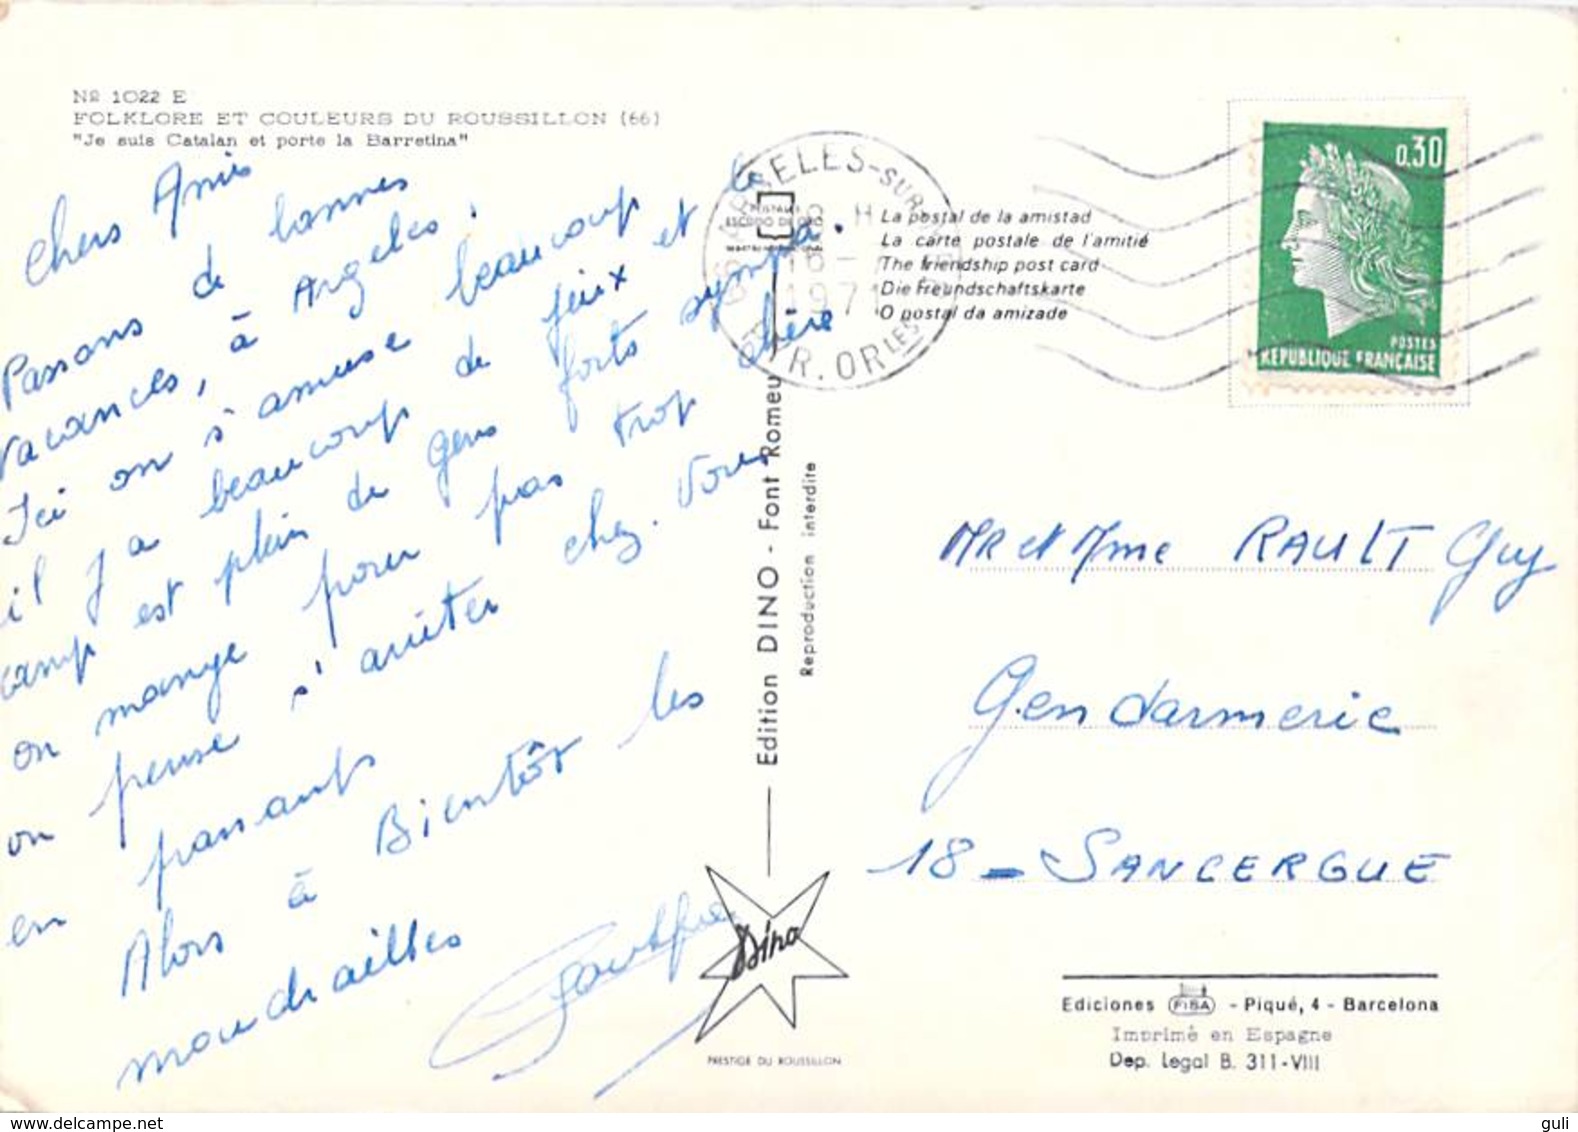 Nº 1022 E
FOLKLORE ET COULEURS DU ROUSSILLON (66)
"Je suis Catalan et porte la Barretina"
Chers Amis
Passons de bonnes
vacances, à Argeles!
Ici on s'amuse beaucoup
il y a beaucoup de jeux et le
camp est plein de gens forts sympa.
on mange pour pas trop chère
on pense s'arrêter chez. vous
en passants
Alors à Bientôt les
moudrailles
ARGELES-SUR-MER
18 H
16 -
1971
R. ORLES
La postal de la amistad
La carte postale de l'amitié
The friendship post card
Die Freundschaftskarte
O postal da amizade
0,30
POSTES
REPUBLIQUE FRANÇAISE
Edition DINO - Font Romeu
Reproduction interdite
Mr et Mme RAULT Guy
Gendarmerie
18 - SANCERGUE
Dino
PRESTIGE DU ROUSSILLON
Ediciones FISA - Piqué, 4 - Barcelona
Imprimé en Espagne
Dep. Legal B. 311-VIII
guli